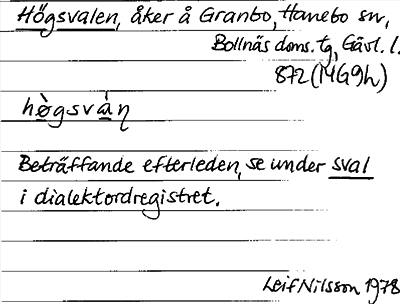 Högsvalen, åker å Granbo, Hanebo sn,
Bollnäs doms. tg, Gävl. l.
872 (14G9h)
hògsvàn
Beträffande efterleden, se under sval
i dialektordregistret.
Leif Nilsson 1978